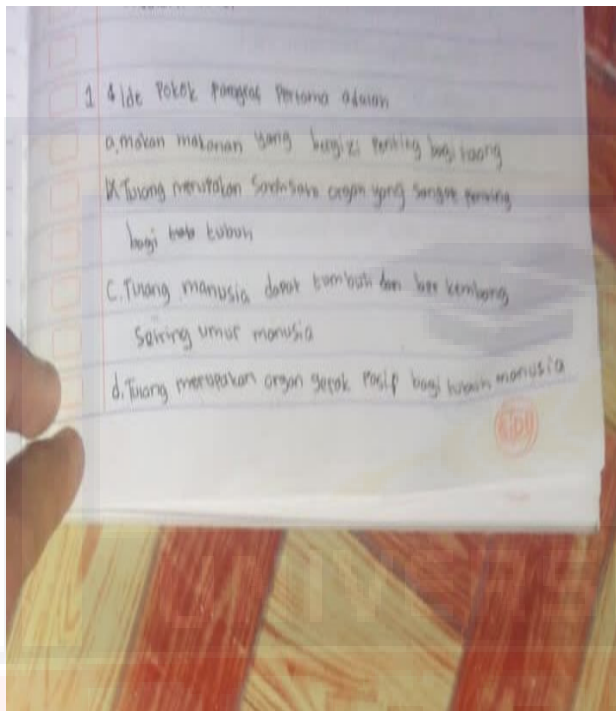 1 Ide Pokok Paragraf Pertama adalah
a. makan makanan yang bergizi penting bagi tulang
Tulang merupakan organ yang sangat penting
bagi tubuh
C. Tulang manusia dapat tumbuh dan ber kembang
Seiring umur manusia
d. Tulang merupakan organ gerak Pasip bagi tubuh manusia
SIDU
UNIVERS